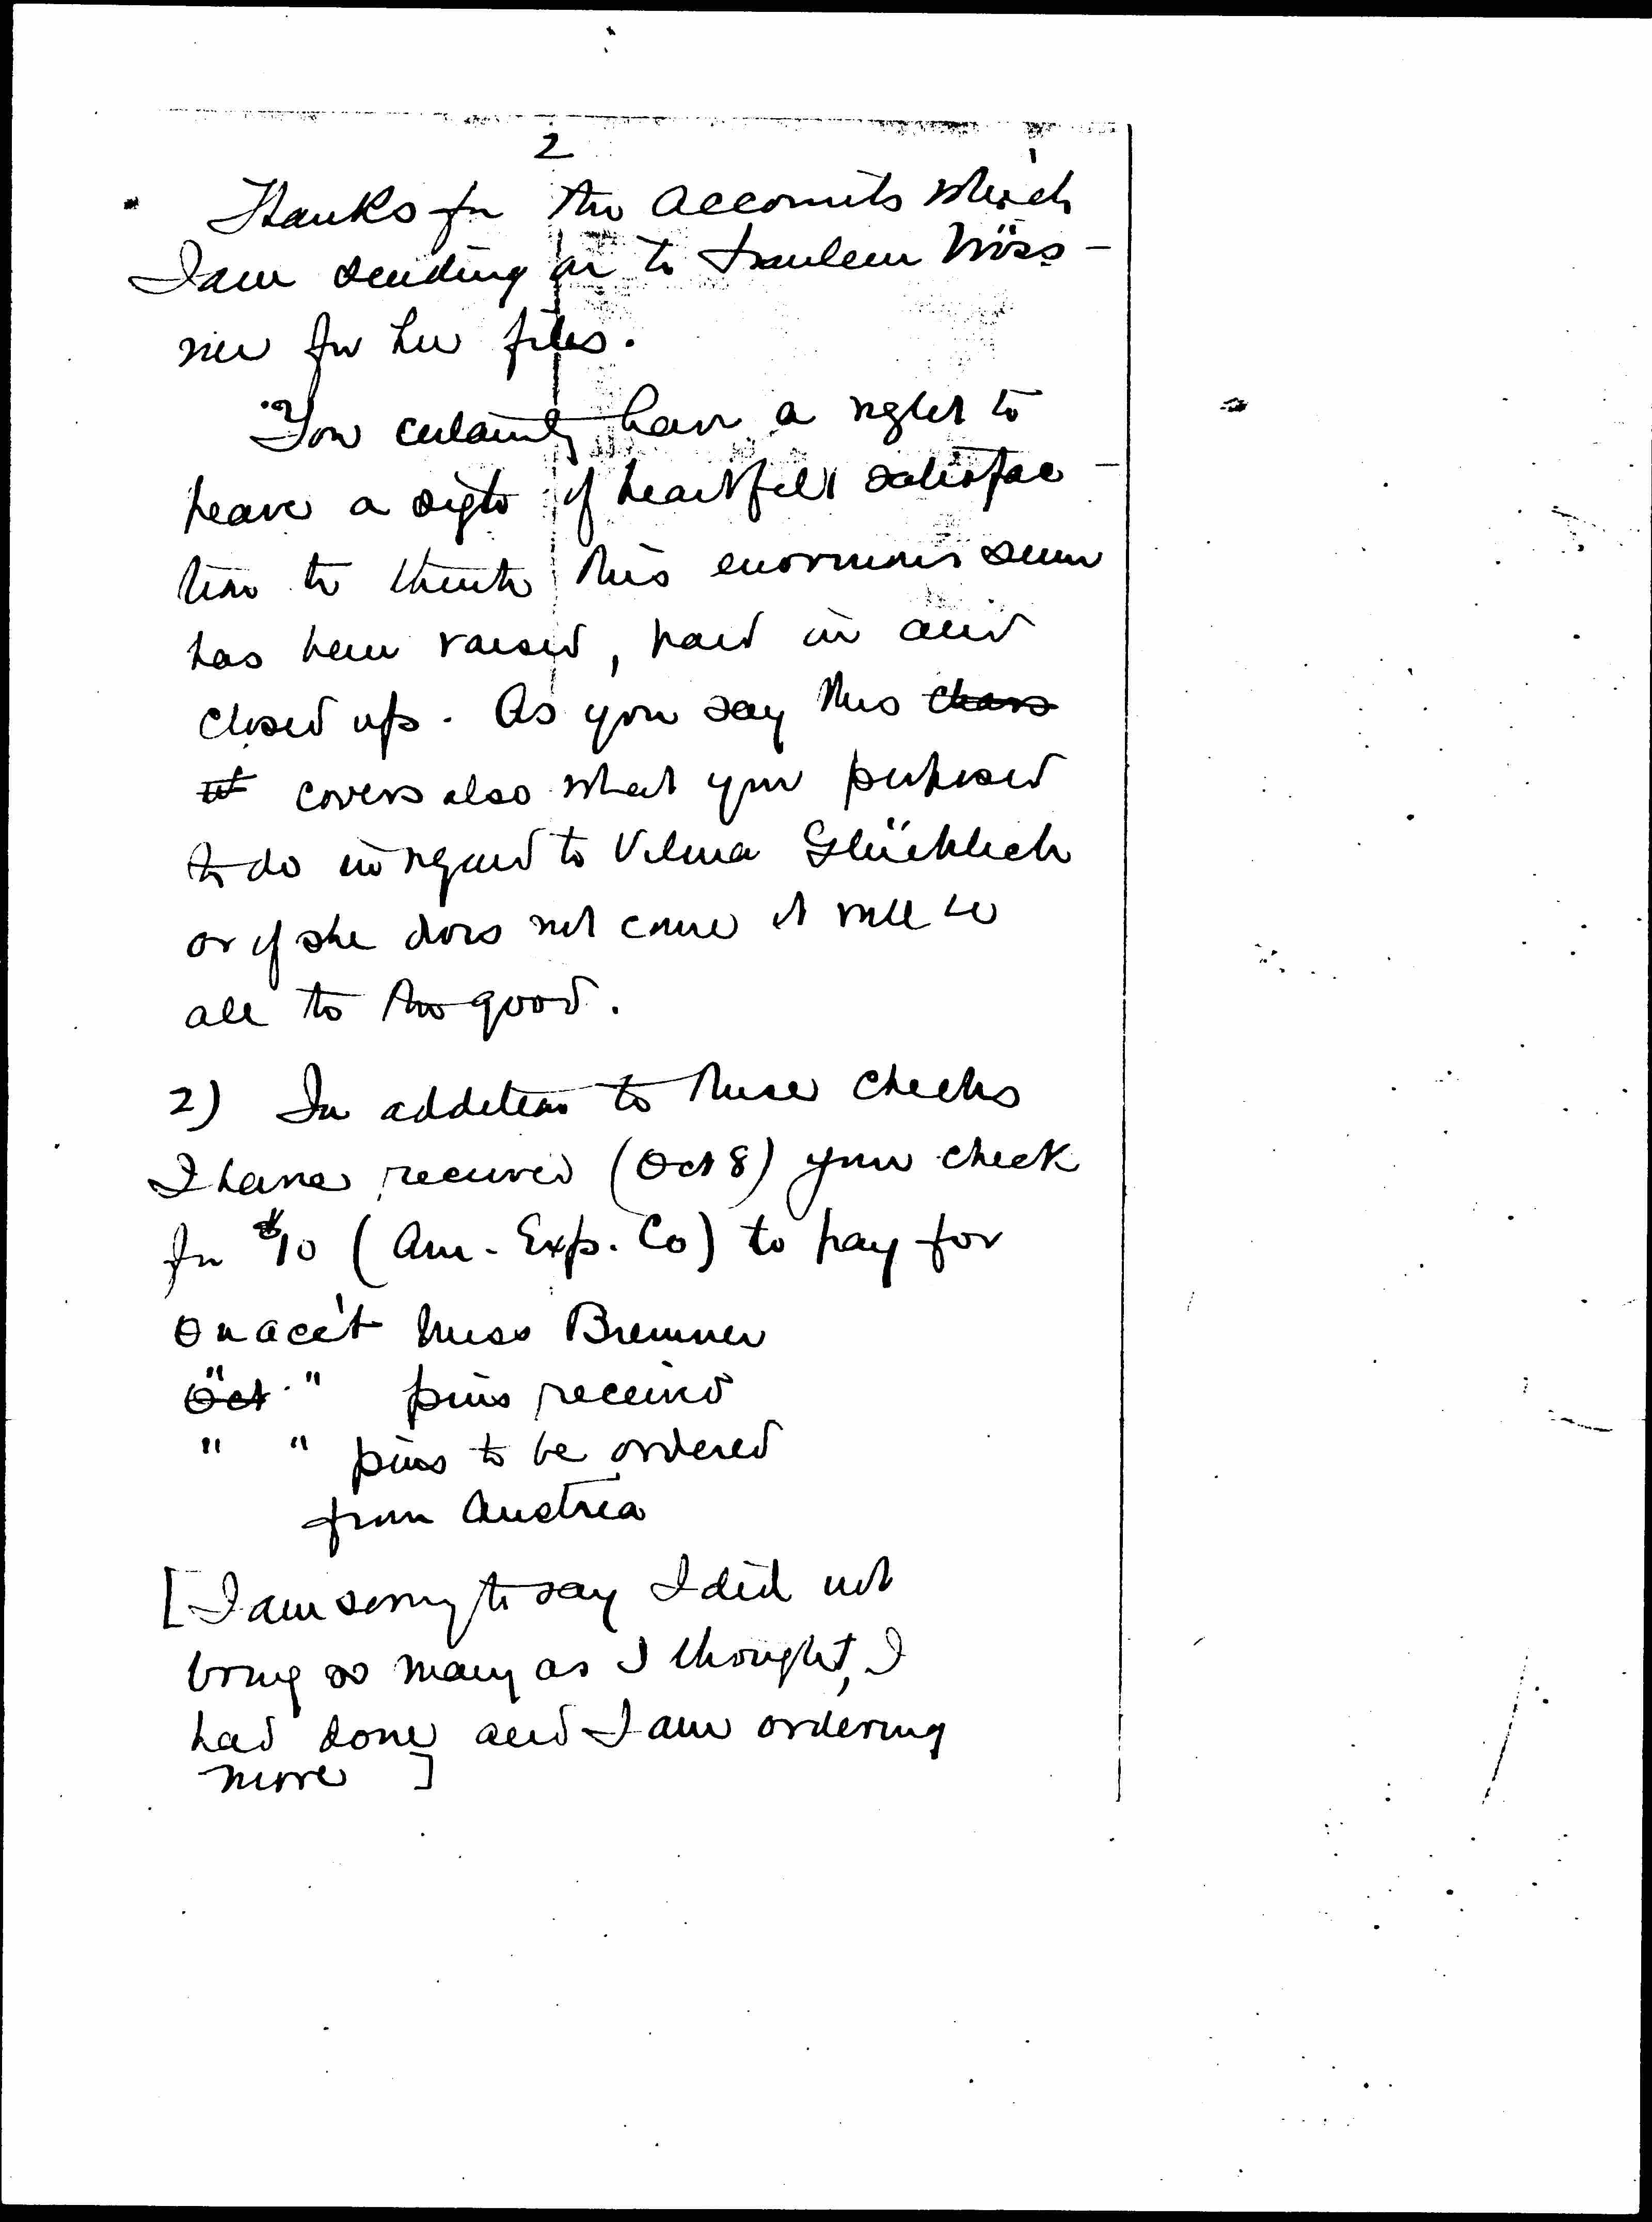 2
Thanks for the accounts which
I am sending on to Fraulein Wöss-
ner for her files.
You certainly have a right to
heave a sigh of heartfelt satisfac-
tion to think this enormous sum
has been raised, paid in and
closed up. As you say this
it covers also what you purposed
to do in regard to Vilma Glücklich
or if she does not come it will be
all to the good.
2) In addition to these checks
I have received (Oct 8) your check
for $10 (Am. Exp. Co) to pay for
On acc't Miss Bremner
Oct " " pins received
" " pins to be ordered
from Austria
[I am sorry to say I did not
bring so many as I thought, I
had done and I am ordering
more ]